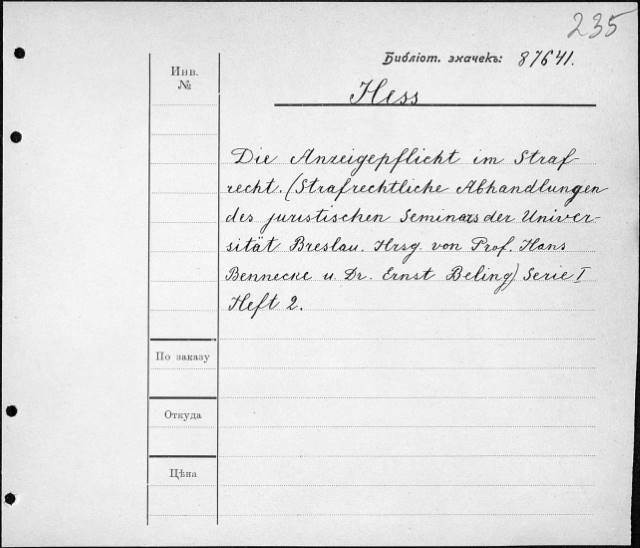 235
Библіот. значекъ: 87641.
Инв.
№
Hess
Die Anzeigepflicht im Straf-
recht. (Strafrechtliche Abhandlungen
des juristischen Seminars der Univer-
sität Breslau. Hrsg. von Prof. Hans
Bennecke u. Dr. Ernst Beling) Serie I
Heft 2.
По заказу
Откуда
Цѣна